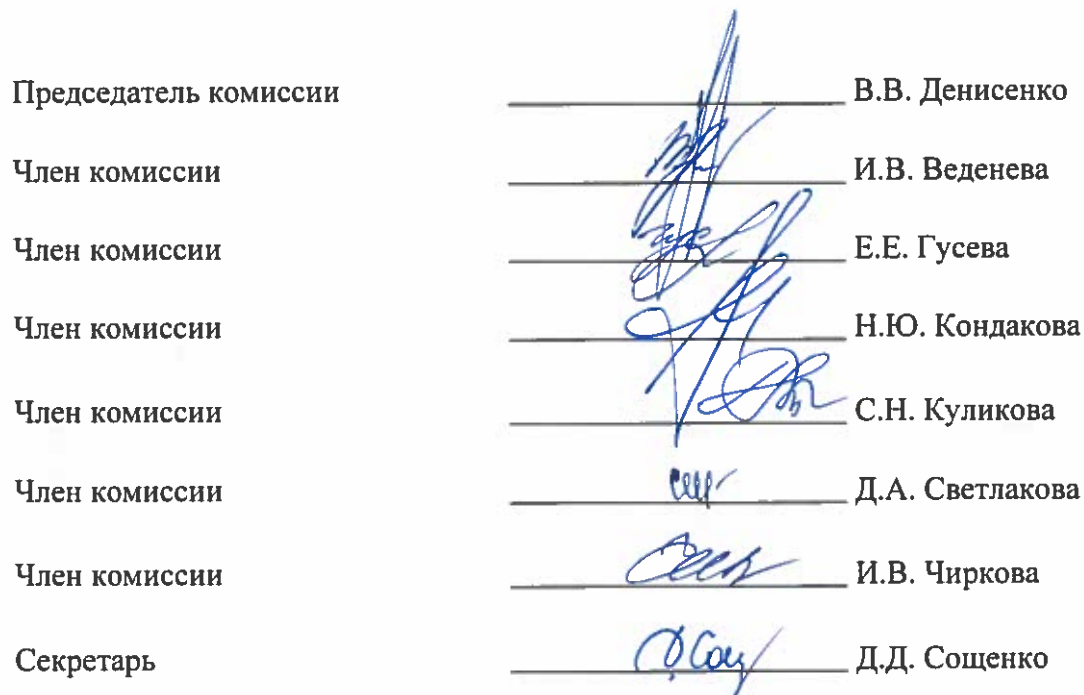 Председатель комиссии В.В. Денисенко
Член комиссии И.В. Веденева
Член комиссии Е.Е. Гусева
Член комиссии Н.Ю. Кондакова
Член комиссии С.Н. Куликова
Член комиссии Д.А. Светлакова
Член комиссии И.В. Чиркова
Секретарь Д.Д. Сощенко